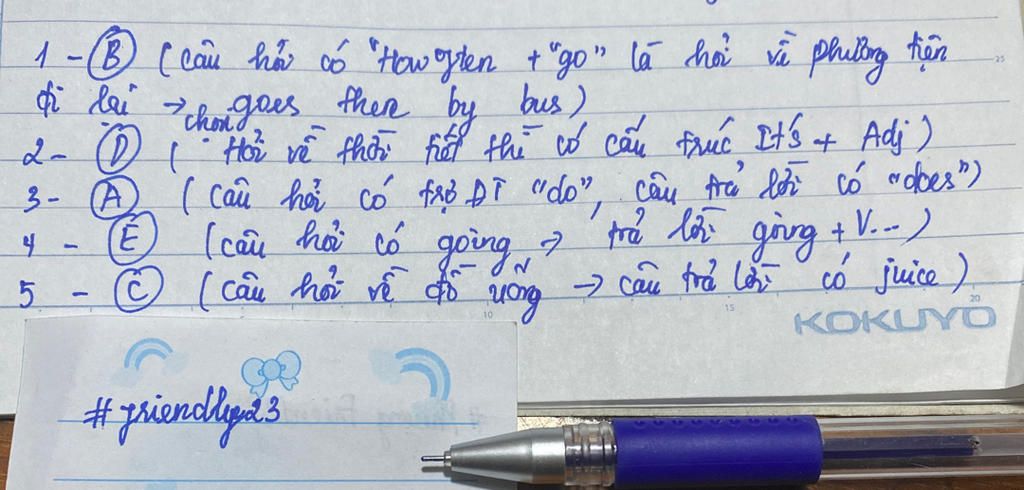 1 - B ( Câu hỏi có "How often + "go" là hỏi về phương tiện
đi lại → goes there by bus )
chọn
2 - D ( Hỏi về thời tiết thì có cấu trúc It's + Adj )
3 - A ( Câu hỏi có trợ ĐT "do", câu trả lời có "does")
4 - E ( Câu hỏi có going → trả lời going + V... )
5 - C ( Câu hỏi về đồ uống → câu trả lời có juice )
KOKUYO
10
15
20
25
#friendly23